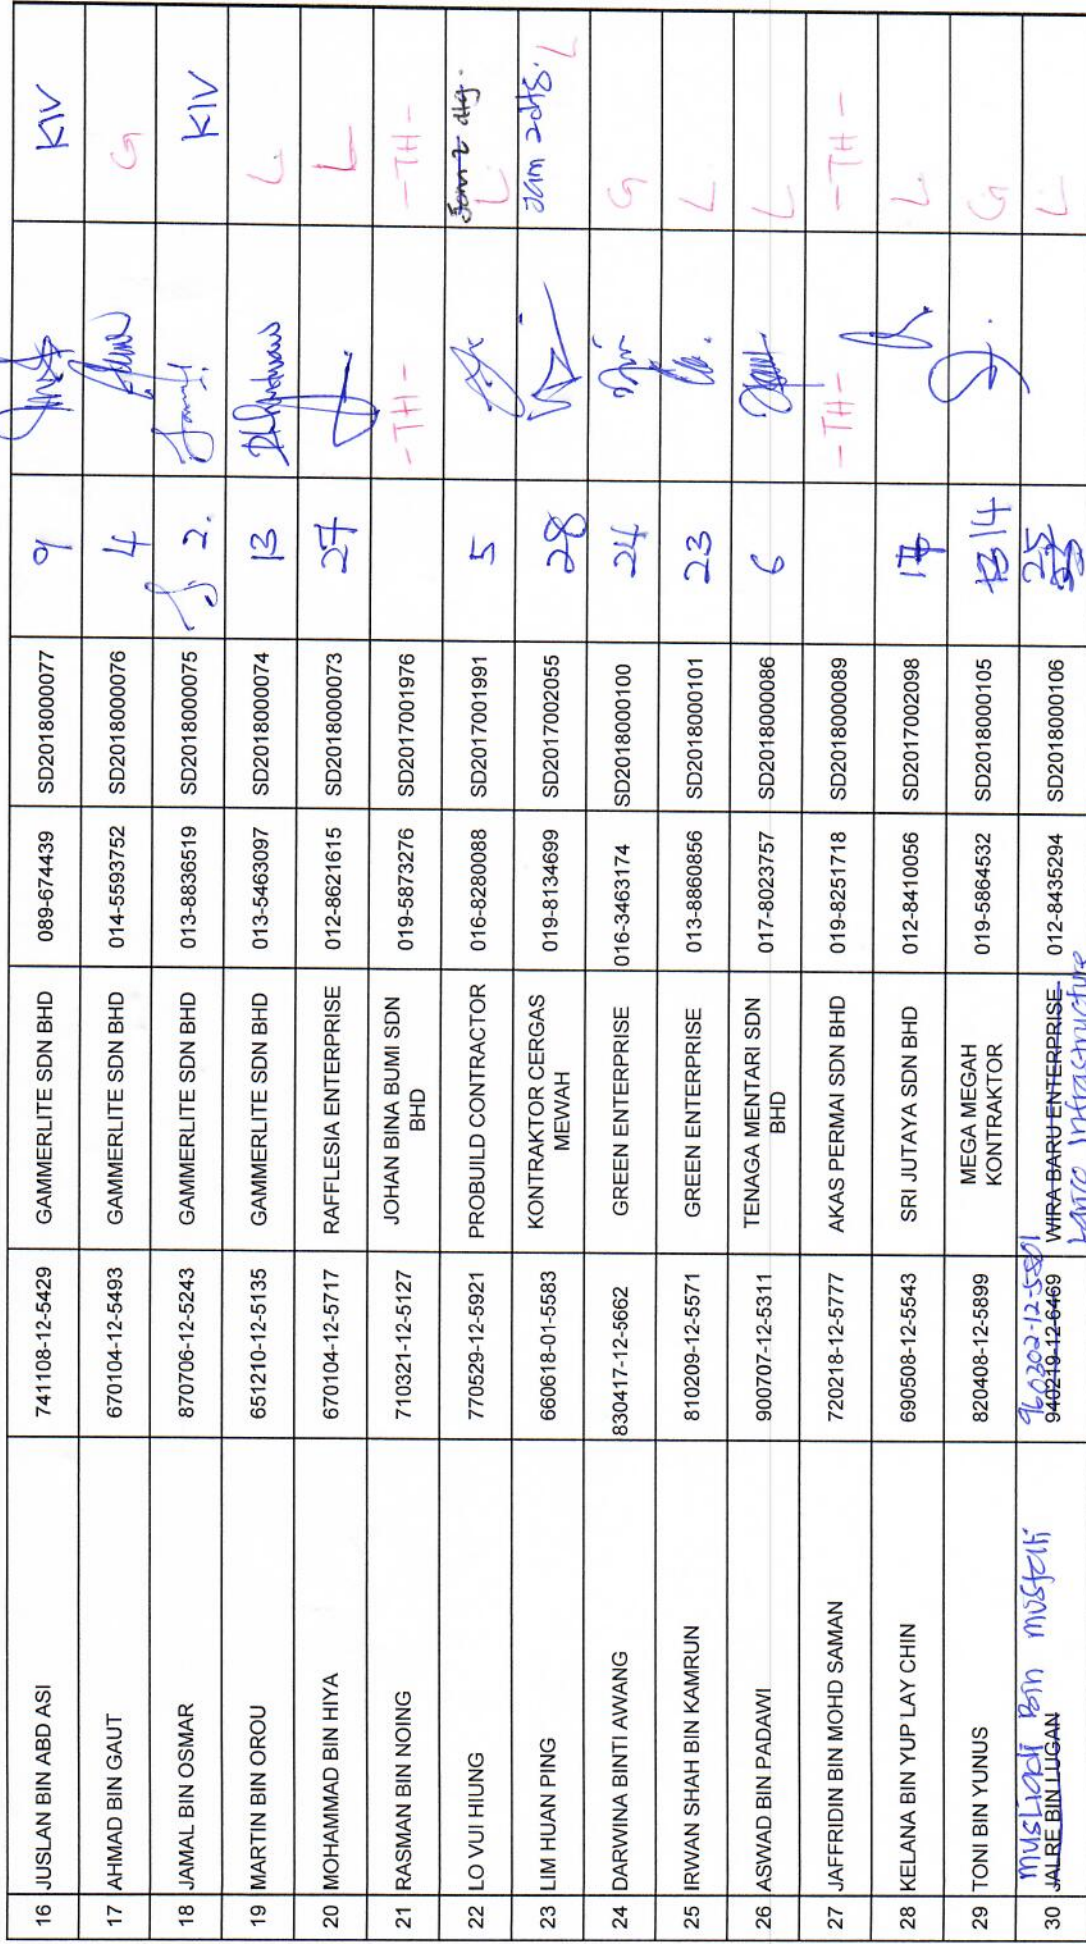 16 JUSLAN BIN ABD ASI 741108-12-5429 GAMMERLITE SDN BHD 089-674439 SD2018000077 9 KIV
17 AHMAD BIN GAUT 670104-12-5493 GAMMERLITE SDN BHD 014-5593752 SD2018000076 4 G
18 JAMAL BIN OSMAR 870706-12-5243 GAMMERLITE SDN BHD 013-8836519 SD2018000075 2. KIV
19 MARTIN BIN OROU 651210-12-5135 GAMMERLITE SDN BHD 013-5463097 SD2018000074 13 L
20 MOHAMMAD BIN HIYA 670104-12-5717 RAFFLESIA ENTERPRISE 012-8621615 SD2018000073 27 L
21 RASMAN BIN NOING 710321-12-5127 JOHAN BINA BUMI SDN
BHD 019-5873276 SD2017001976 -TH- -TH-
22 LO VUI HIUNG 770529-12-5921 PROBUILD CONTRACTOR 016-8280088 SD2017001991 5 Jam 2 dtg.
L
23 LIM HUAN PING 660618-01-5583 KONTRAKTOR CERGAS
MEWAH 019-8134699 SD2017002055 28 Jam 2 dtg. L
24 DARWINA BINTI AWANG 830417-12-5662 GREEN ENTERPRISE 016-3463174 SD2018000100 24 G
25 IRWAN SHAH BIN KAMRUN 810209-12-5571 GREEN ENTERPRISE 013-8860856 SD2018000101 23 L
26 ASWAD BIN PADAWI 900707-12-5311 TENAGA MENTARI SDN
BHD 017-8023757 SD2018000086 6 L
27 JAFFRIDIN BIN MOHD SAMAN 720218-12-5777 AKAS PERMAI SDN BHD 019-8251718 SD2018000089 -TH- -TH-
28 KELANA BIN YUP LAY CHIN 690508-12-5543 SRI JUTAYA SDN BHD 012-8410056 SD2017002098 L
29 TONI BIN YUNUS 820408-12-5899 MEGA MEGAH
KONTRAKTOR 019-5864532 SD2018000105 14 G
Musliadi Bin Mustali 960202-12-5801
30 JALRE BIN LUGAN 940219-12-6469 WIRA BARU ENTERPRISE 012-8435294 SD2018000106 25 L
Infrastructure